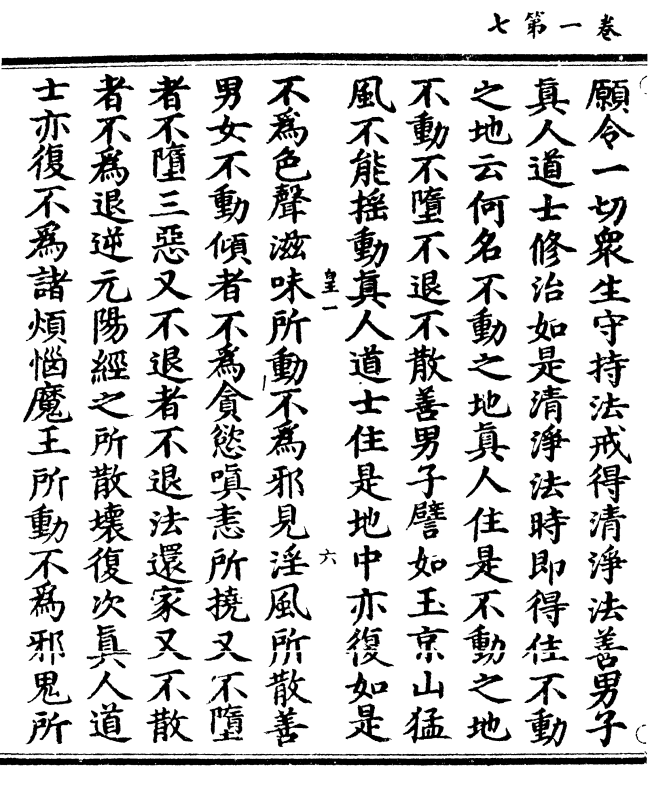 卷一第七
願令一切衆生守持法戒得清淨法善男子
眞人道士修治如是清淨法時即得住不動
之地云何名不動之地眞人住是不動之地
不動不墮不退不散善男子譬如玉京山猛
風不能揺動眞人道士住是地中亦復如是
皇一 六
不爲色聲滋味所動不爲邪見淫風所散善
男女不動傾者不爲貪慾嗔恚所撓又不墮
者不墮三惡又不退者不退法還家又不散
者不爲退逆元陽經之所散壞復次眞人道
士亦復不爲諸煩惱魔王所動不爲邪鬼所